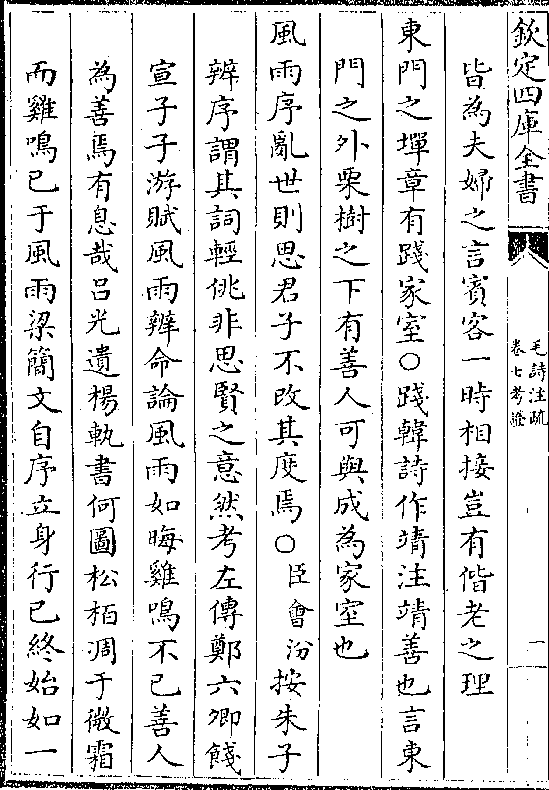 欽定四庫全書
毛詩注疏
卷七考證
一
皆為夫婦之言賓客一時相接豈有偕老之理
東門之墠章有踐家室○踐韓詩作靖注靖善也言東
門之外栗樹之下有善人可與成為家室也
風雨序亂世則思君子不改其度焉○臣會汾按朱子
辨序謂其詞輕佻非思賢之意然考左傳鄭六卿餞
宣子子游賦風雨辨命論風雨如晦雞鳴不已善人
為善焉有息哉呂光遺楊軌書何圖松栢凋于微霜
而雞鳴已于風雨梁簡文自序立身行已終始如一